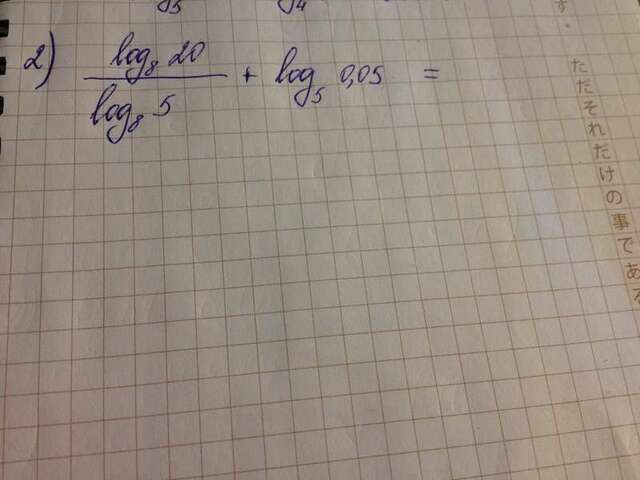 2) log₈ 20 / log₈ 5 + log₅ 0,05 =
す.
ただそれだけの事である